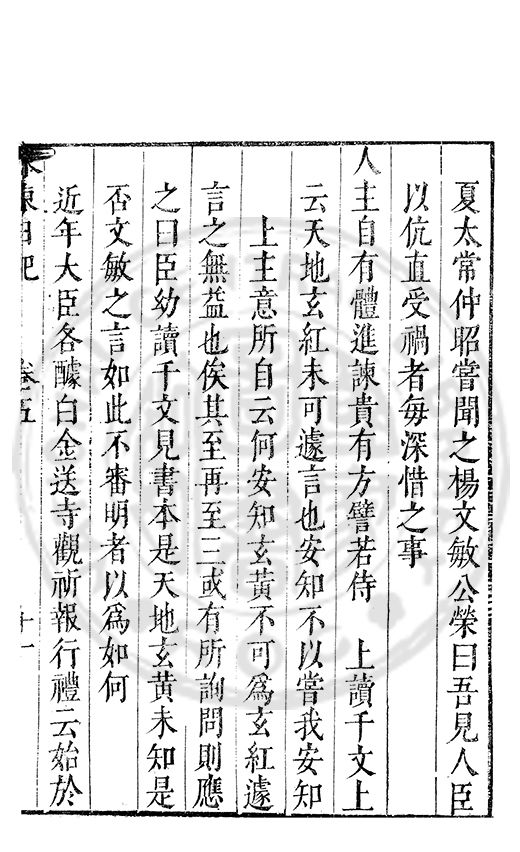 夏太常仲昭嘗聞之楊文敏公榮曰吾見人臣
以伉直受禍者每深惜之事
人主自有體進諫貴有方譬若侍　上讀千文上
云天地玄紅未可遽言也安知不以嘗我安知
上主意所自云何安知玄黃不可爲玄紅遽
言之無益也俟其至再至三或有所詢問則應
之曰臣幼讀千文見書本是天地玄黃未知是
否文敏之言如此不審明者以爲如何
近年大臣各醵白金送寺觀祈報行禮云始於
水東日記　卷五　十一